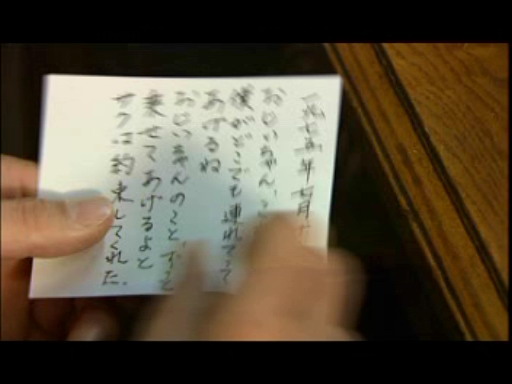 年七月
おじいちゃん、
僕がどこでも連れてって
あげるね
おじいちゃんのこと、ずっと
乗せてあげるよと
サクは約束してくれた。